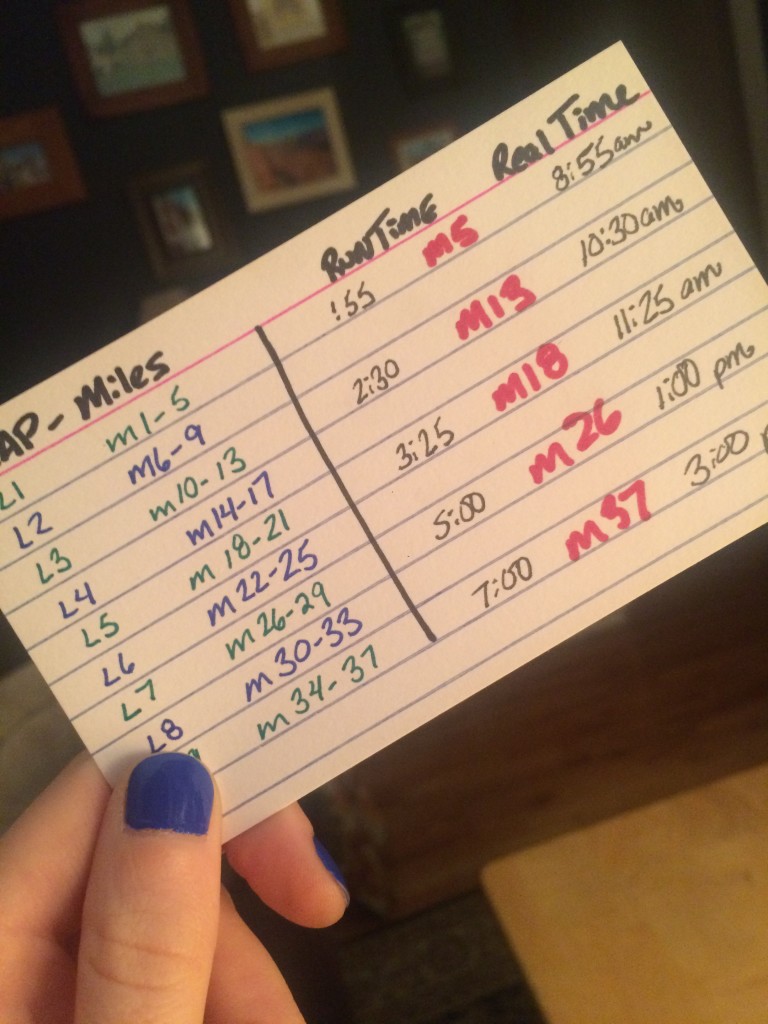 LAP - Miles
L1 m1-5
L2 m6-9
L3 m10-13
L4 m14-17
L5 m18-21
L6 m22-25
L7 m26-29
L8 m30-33
m34-37
RunTime Real Time
:55 M5 8:55am
2:30 M13 10:30am
3:25 M18 11:25 am
5:00 M26 1:00 pm
7:00 M37 3:00 p